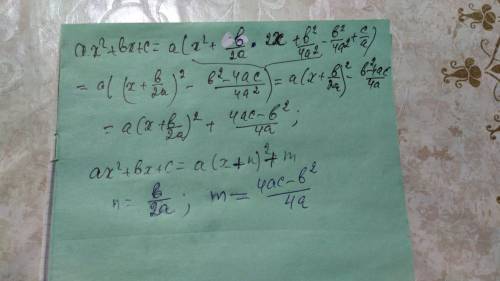 ax²+bx+c = a(x²+ b/2a · 2x + b²/4a² - b²/4a² + c/a)
= a((x+ b/2a)² - b²-4ac/4a²) = a(x+ b/2a)² - b²-4ac/4a
= a(x+ b/2a)² + 4ac-b²/4a ;
ax²+bx+c = a(x+n)²+m
n= b/2a ; m= 4ac-b²/4a